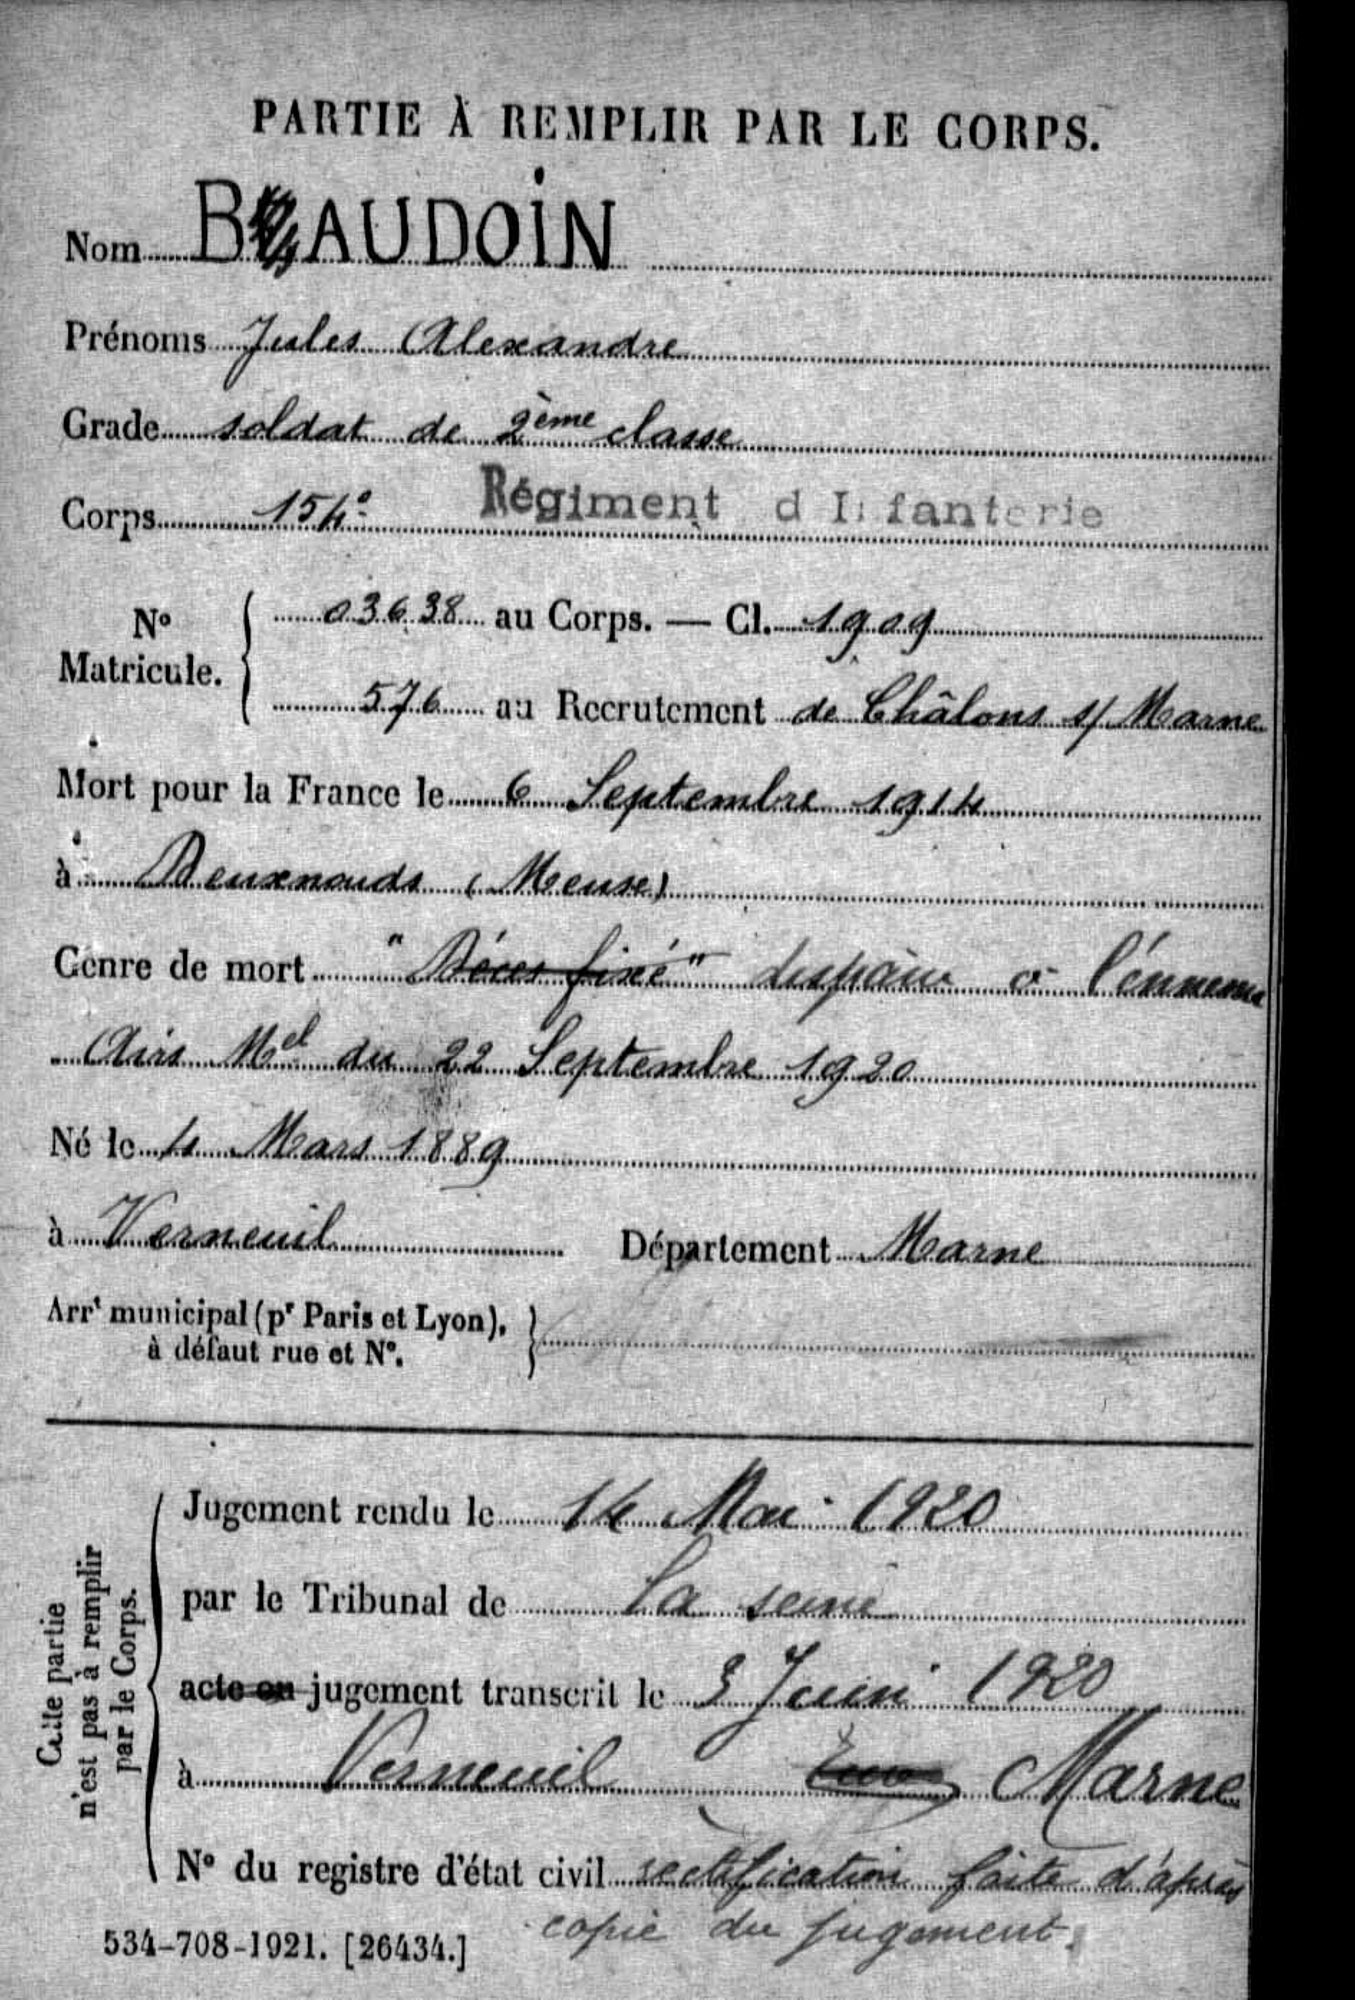 PARTIE À REMPLIR PAR LE CORPS.
Nom BAUDOIN
Prénoms Jules Alexandre
Grade soldat de 2ème classe
Corps 154e Régiment d Infanterie
No Matricule. { 03638 au Corps. — Cl. 1909
576 au Recrutement de Châlons s/ Marne
Mort pour la France le 6 Septembre 1914
à Deuxnouds (Meuse)
Genre de mort "Décès fixé" disparu à l'ennemi
Avis Mel du 22 Septembre 1920
Né le 4 Mars 1889
à Verneuil Département Marne
Arrt municipal (pr Paris et Lyon), à défaut rue et No. }
Cette partie n'est pas à remplir par le Corps.
Jugement rendu le 14 Mai 1920
par le Tribunal de la Seine
acte ou jugement transcrit le 3 Juin 1920
à Verneuil Marne
No du registre d'état civil rectification faite d'après
copie du jugement.
534-708-1921. [26434.]